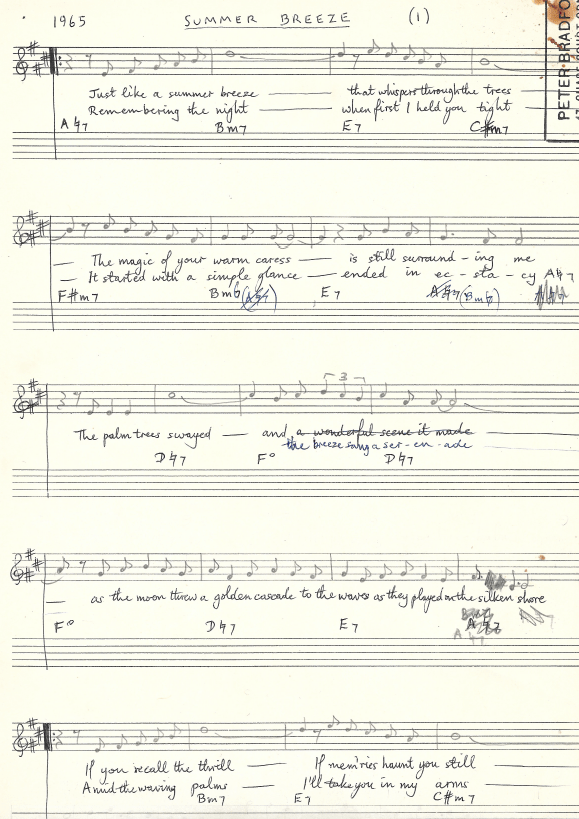 1965 SUMMER BREEZE (1)
PETER·BRADFO
Just like a summer breeze — that whispers through the trees
Remembering the night — when first I held you tight
A♮7 Bm7 E7 C#m7
— The magic of your warm caress — is still surround-ing me
— It started with a simple glance — ended in ec-sta-cy A♮7
F#m7 Bm6 (A♮7) E7 A♮7 (Bm6)
3
The palm trees swayed — and a wonderful scene it made
the breeze sang a ser-en-ade
D♮7 F° D♮7
as the moon threw a golden cascade to the waves as they played on the silken shore
F° D♮7 E7 A♮7
A♮7
If you recall the thrill — If mem'ries haunt you still
Amid the waving palms — I'll take you in my arms
Bm7 E7 C#m7